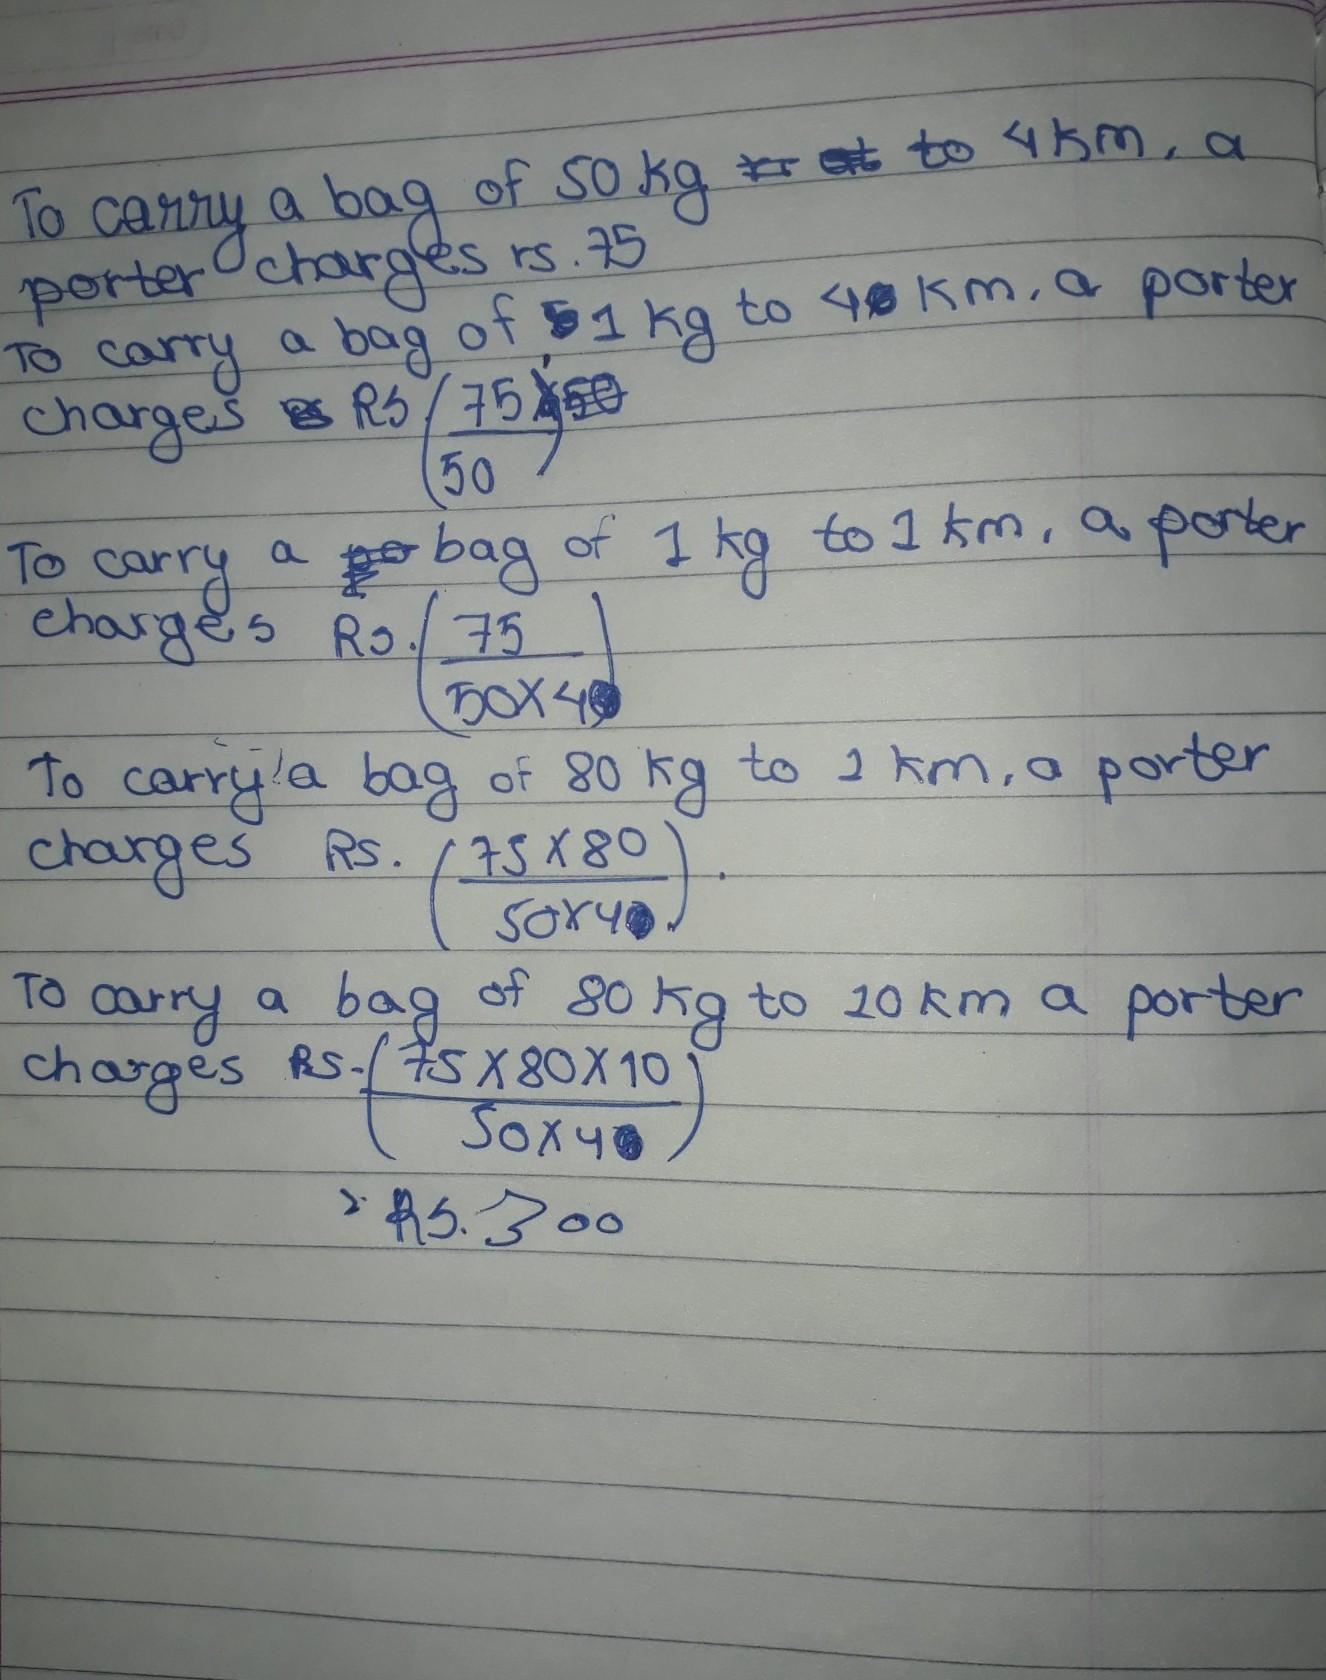 To carry a bag of 50 kg to 4 km, a
porter charges rs. 75
To carry a bag of 1 kg to 4 km, a porter
charges Rs (75
50)
To carry a bag of 1 kg to 1 km, a porter
charges Rs. (75
50X4)
To carry a bag of 80 kg to 1 km, a porter
charges Rs. (75 X 80
50X4).
To carry a bag of 80 kg to 10 km a porter
charges Rs. (75 X 80 X 10
50X4)
= Rs. 300